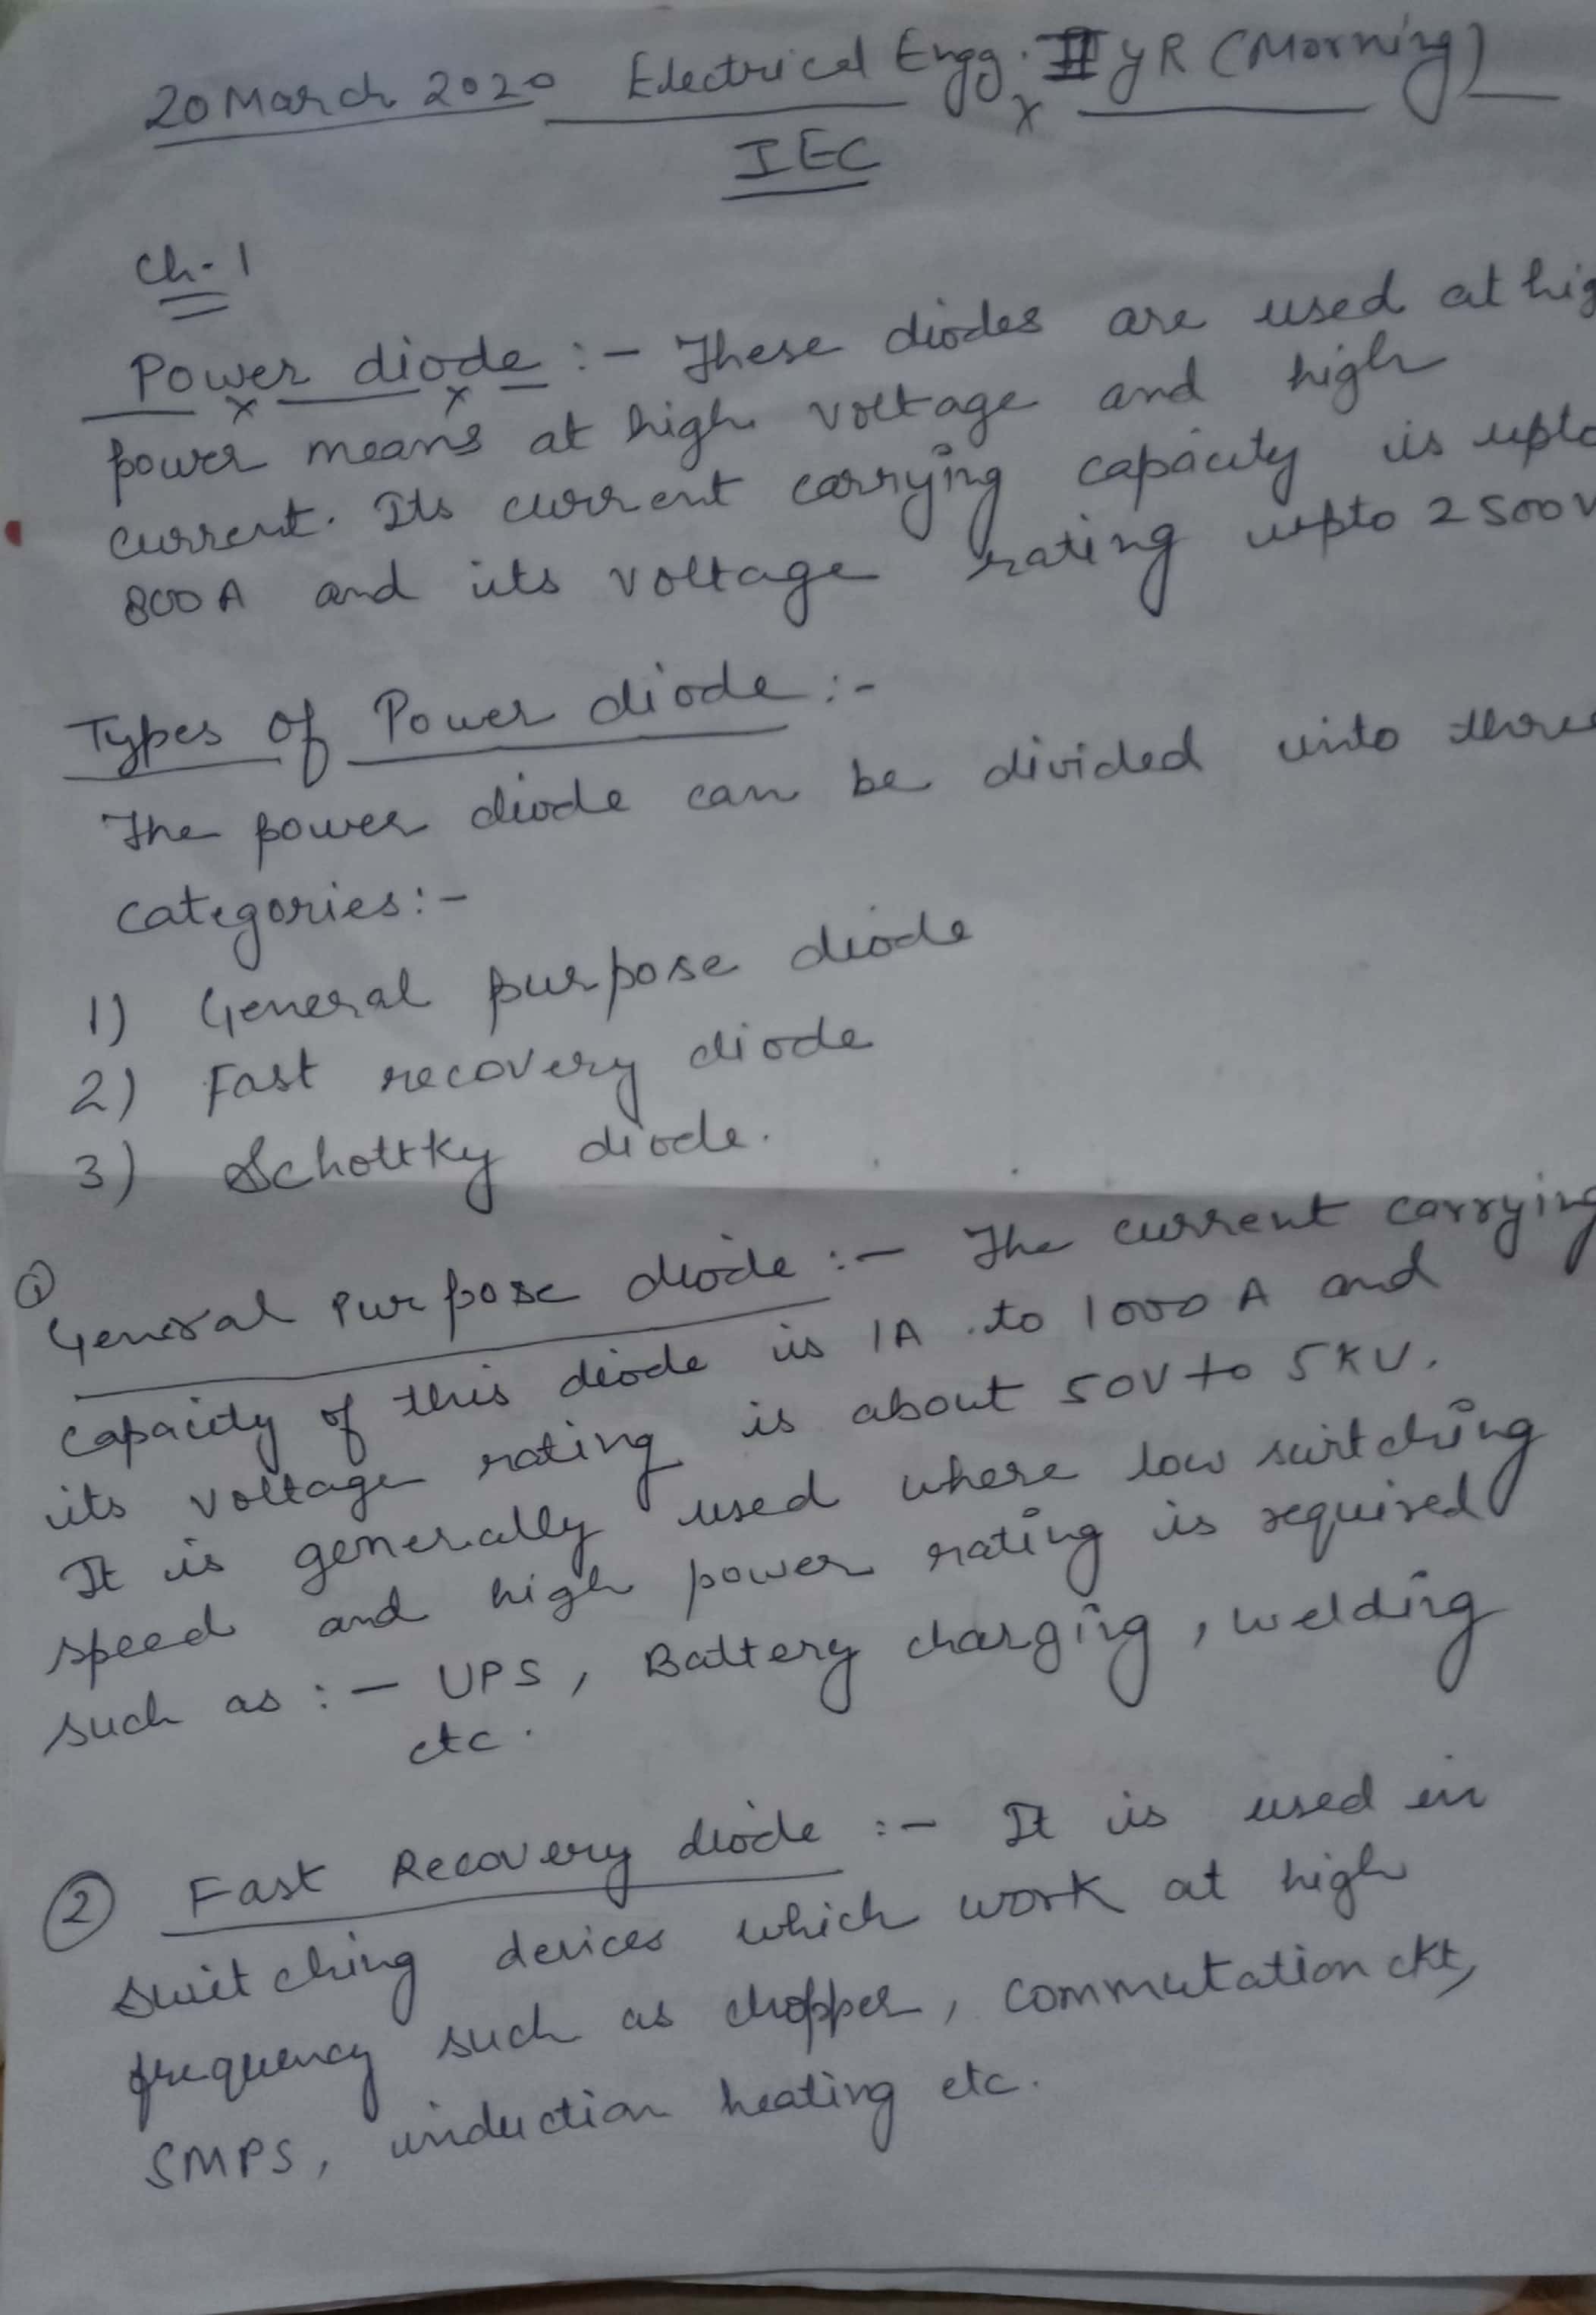 20 March 2020 Electrical Engg. II yR (Morning)
IEC
Ch-1
Power diode :- These diodes are used at hig
power means at high voltage and high
current. Its current carrying capacity is upto
800A and its voltage rating upto 2500V
Types of Power diode :-
The power diode can be divided into three
categories:-
1) General purpose diode
2) Fast recovery diode
3) Schottky diode.
① General Purpose diode :- The current carrying
capacity of this diode is 1A to 1000 A and
its voltage rating is about 50V to 5KV.
It is generally used where low switching
speed and high power rating is required
such as :- UPS, Battery charging, welding
etc.
② Fast Recovery diode :- It is used in
switching devices which work at high
frequency such as chopper, commutation ckt,
SMPS, induction heating etc.